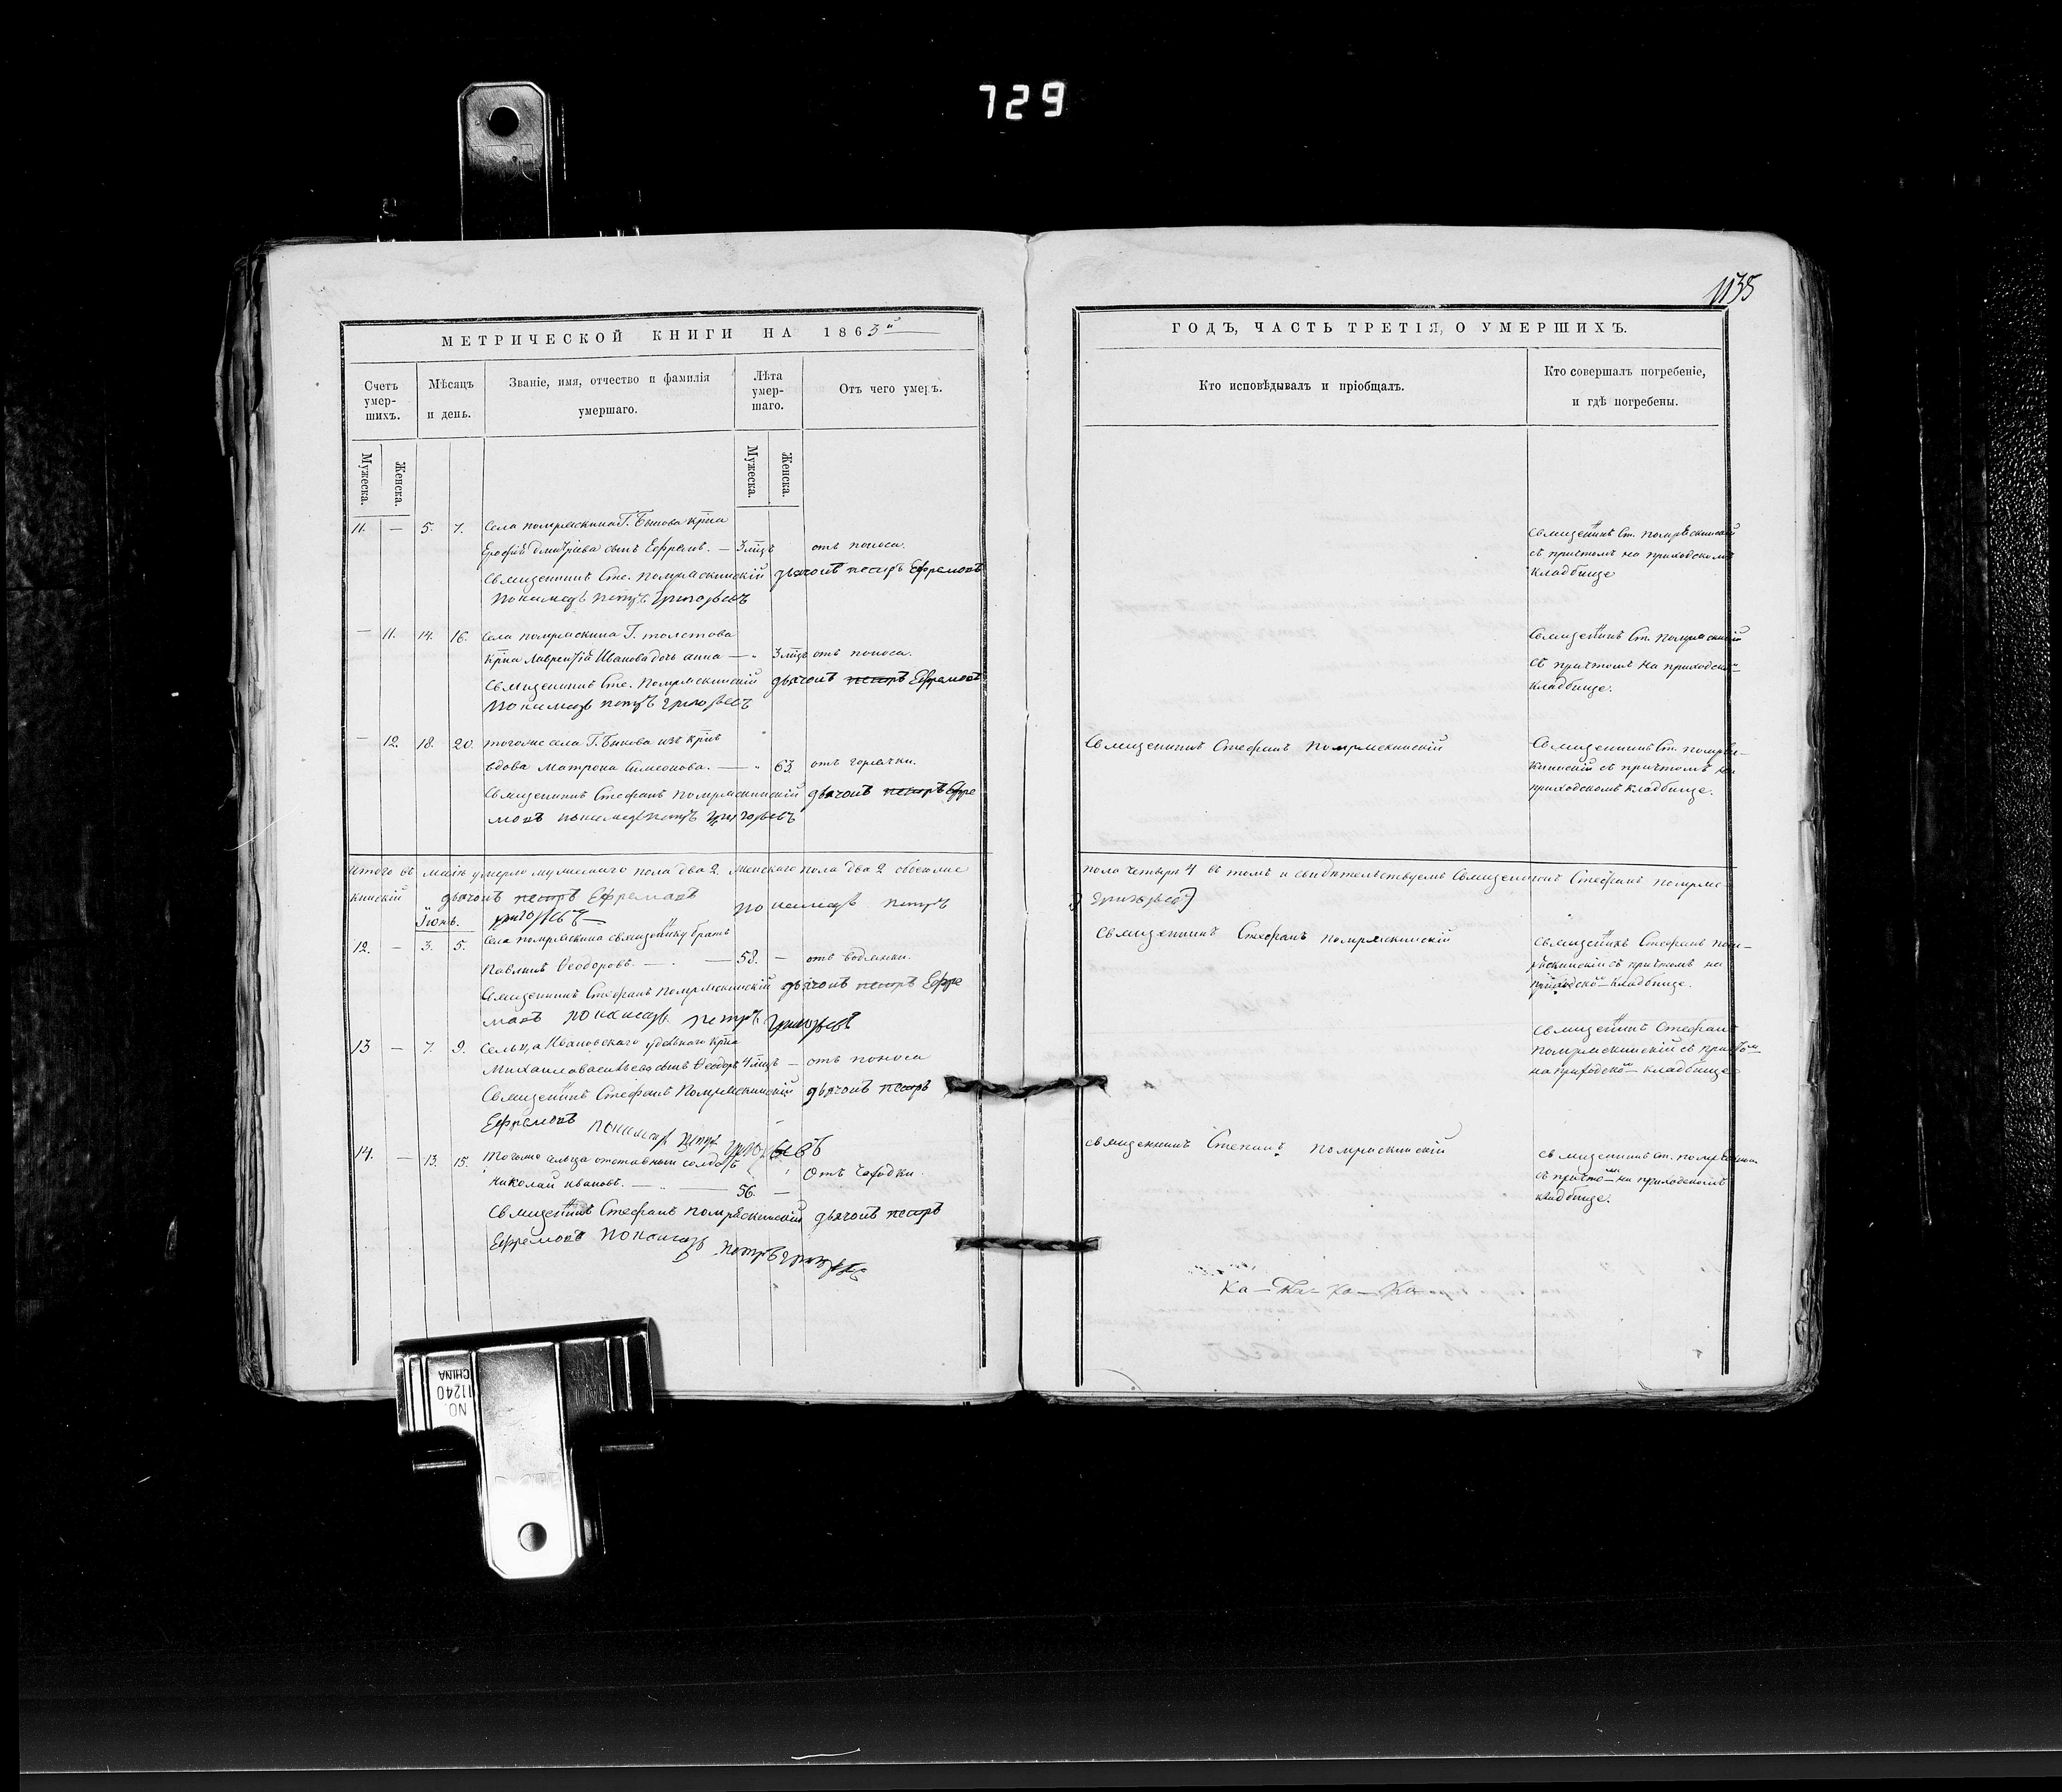 729
1135
МЕТРИЧЕСКОЙ КНИГИ НА 1863й
Счетъ умер-шихъ.
Мѣсяцъ и день.
Званіе, имя, отчество и фамилія умершаго.
Лѣта умер-шаго.
Отъ чего умеръ.
Мужеска.
Женска.
Мужеска.
Женска.
11. — 5. 7. Села помряскина Г. Быкова крна
Ерофѣя Дмитріева сынъ Ефремъ. — 3 мцъ отъ поноса.
Священникъ Сте. Помряскинскій дьячокъ Ефремовъ
Пономарь петръ Григорьевъ
— 11. 14. 16. Села помряскина Г. толстова
крна Лаврентія Иванова дочь анна — " 3 мцъ отъ поноса.
Священникъ Сте. Помряскинскій дьячокъ Ефремовъ
Пономарь петръ Григорьевъ
— 12. 18. 20. тогоже села Г. Быкова изъ крнъ
вдова Матрона Симеонова. — " 63. отъ горячки.
Священникъ Стефанъ Помряскинскій дьячокъ Ефре
мовъ пономарь петръ Григорьевъ
Итого въ маіѣ умерло мужескаго пола два 2. женскаго пола два 2 обоегоже
кинскій дьячокъ Ефремовъ пономарь петръ
Іюнь. Григорьевъ
12. — 3. 5. Села Помряскина священнику братъ
Павлинъ Ѳеодоровъ. — 58. — отъ водянки.
Священникъ Стефанъ Помряскинскій дьячокъ Ефре
мовъ пономарь петръ Григорьевъ
13 — 7. 9. Сельца Ивановскаго удѣльнаго крна
Михаила Васильева сынъ Ѳеодоръ 4 мцъ — отъ поноса
Священникъ Стефанъ Помряскинскій дьячокъ
Ефремовъ пономарь петръ Григорьевъ
14. — 13. 15. Тогоже сельца отставный солдатъ
Николай Ивановъ. — 56. — Отъ чахотки.
Священникъ Стефанъ Помряскинскій дьячокъ
Ефремовъ Пономарь петръ Григорьевъ
ГОДЪ, ЧАСТЬ ТРЕТІЯ, О УМЕРШИХЪ.
Кто исповѣдывалъ и пріобщалъ.
Кто совершалъ погребеніе,
и гдѣ погребены.
Священникъ Ст. помряскинскій
съ причтомъ на приходскомъ
кладбище
Священникъ Ст. Помряскинскій
съ причтомъ на приходско—
кладбище.
Священникъ Стефанъ Помряскинскій
Священникъ Ст. помряс-
кинскій съ причтомъ на
приходскомъ кладбище.
пола четыри 4 въ томъ и свидѣтельствуемъ Священникъ Стефанъ помряс-
Григорьевъ
Священникъ Стефанъ помряскинскій
Священникъ Стефанъ пом-
ряскинскій съ причтомъ на
приходско— кладбище.
Священникъ Стефанъ
помряскинскій съ причтом
на приходско— кладбище
священникъ Степанъ помряскинскій
священникъ Ст. помряскин.
съ причто— на приходскомъ
кладбище.
Ка—
NO. 11240
CHINA